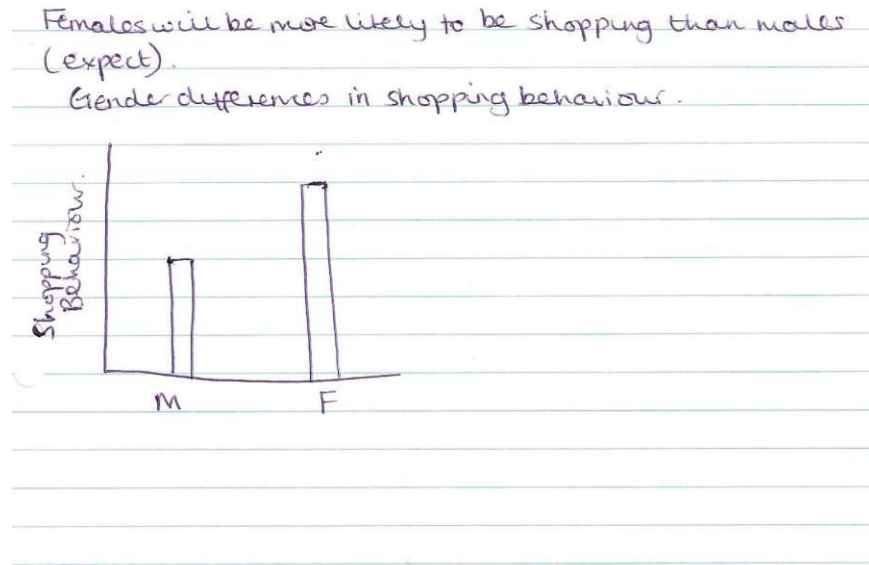 Females will be more likely to be shopping than males
(expect).
Gender differences in shopping behaviour.
Shopping
Behaviour.
M
F